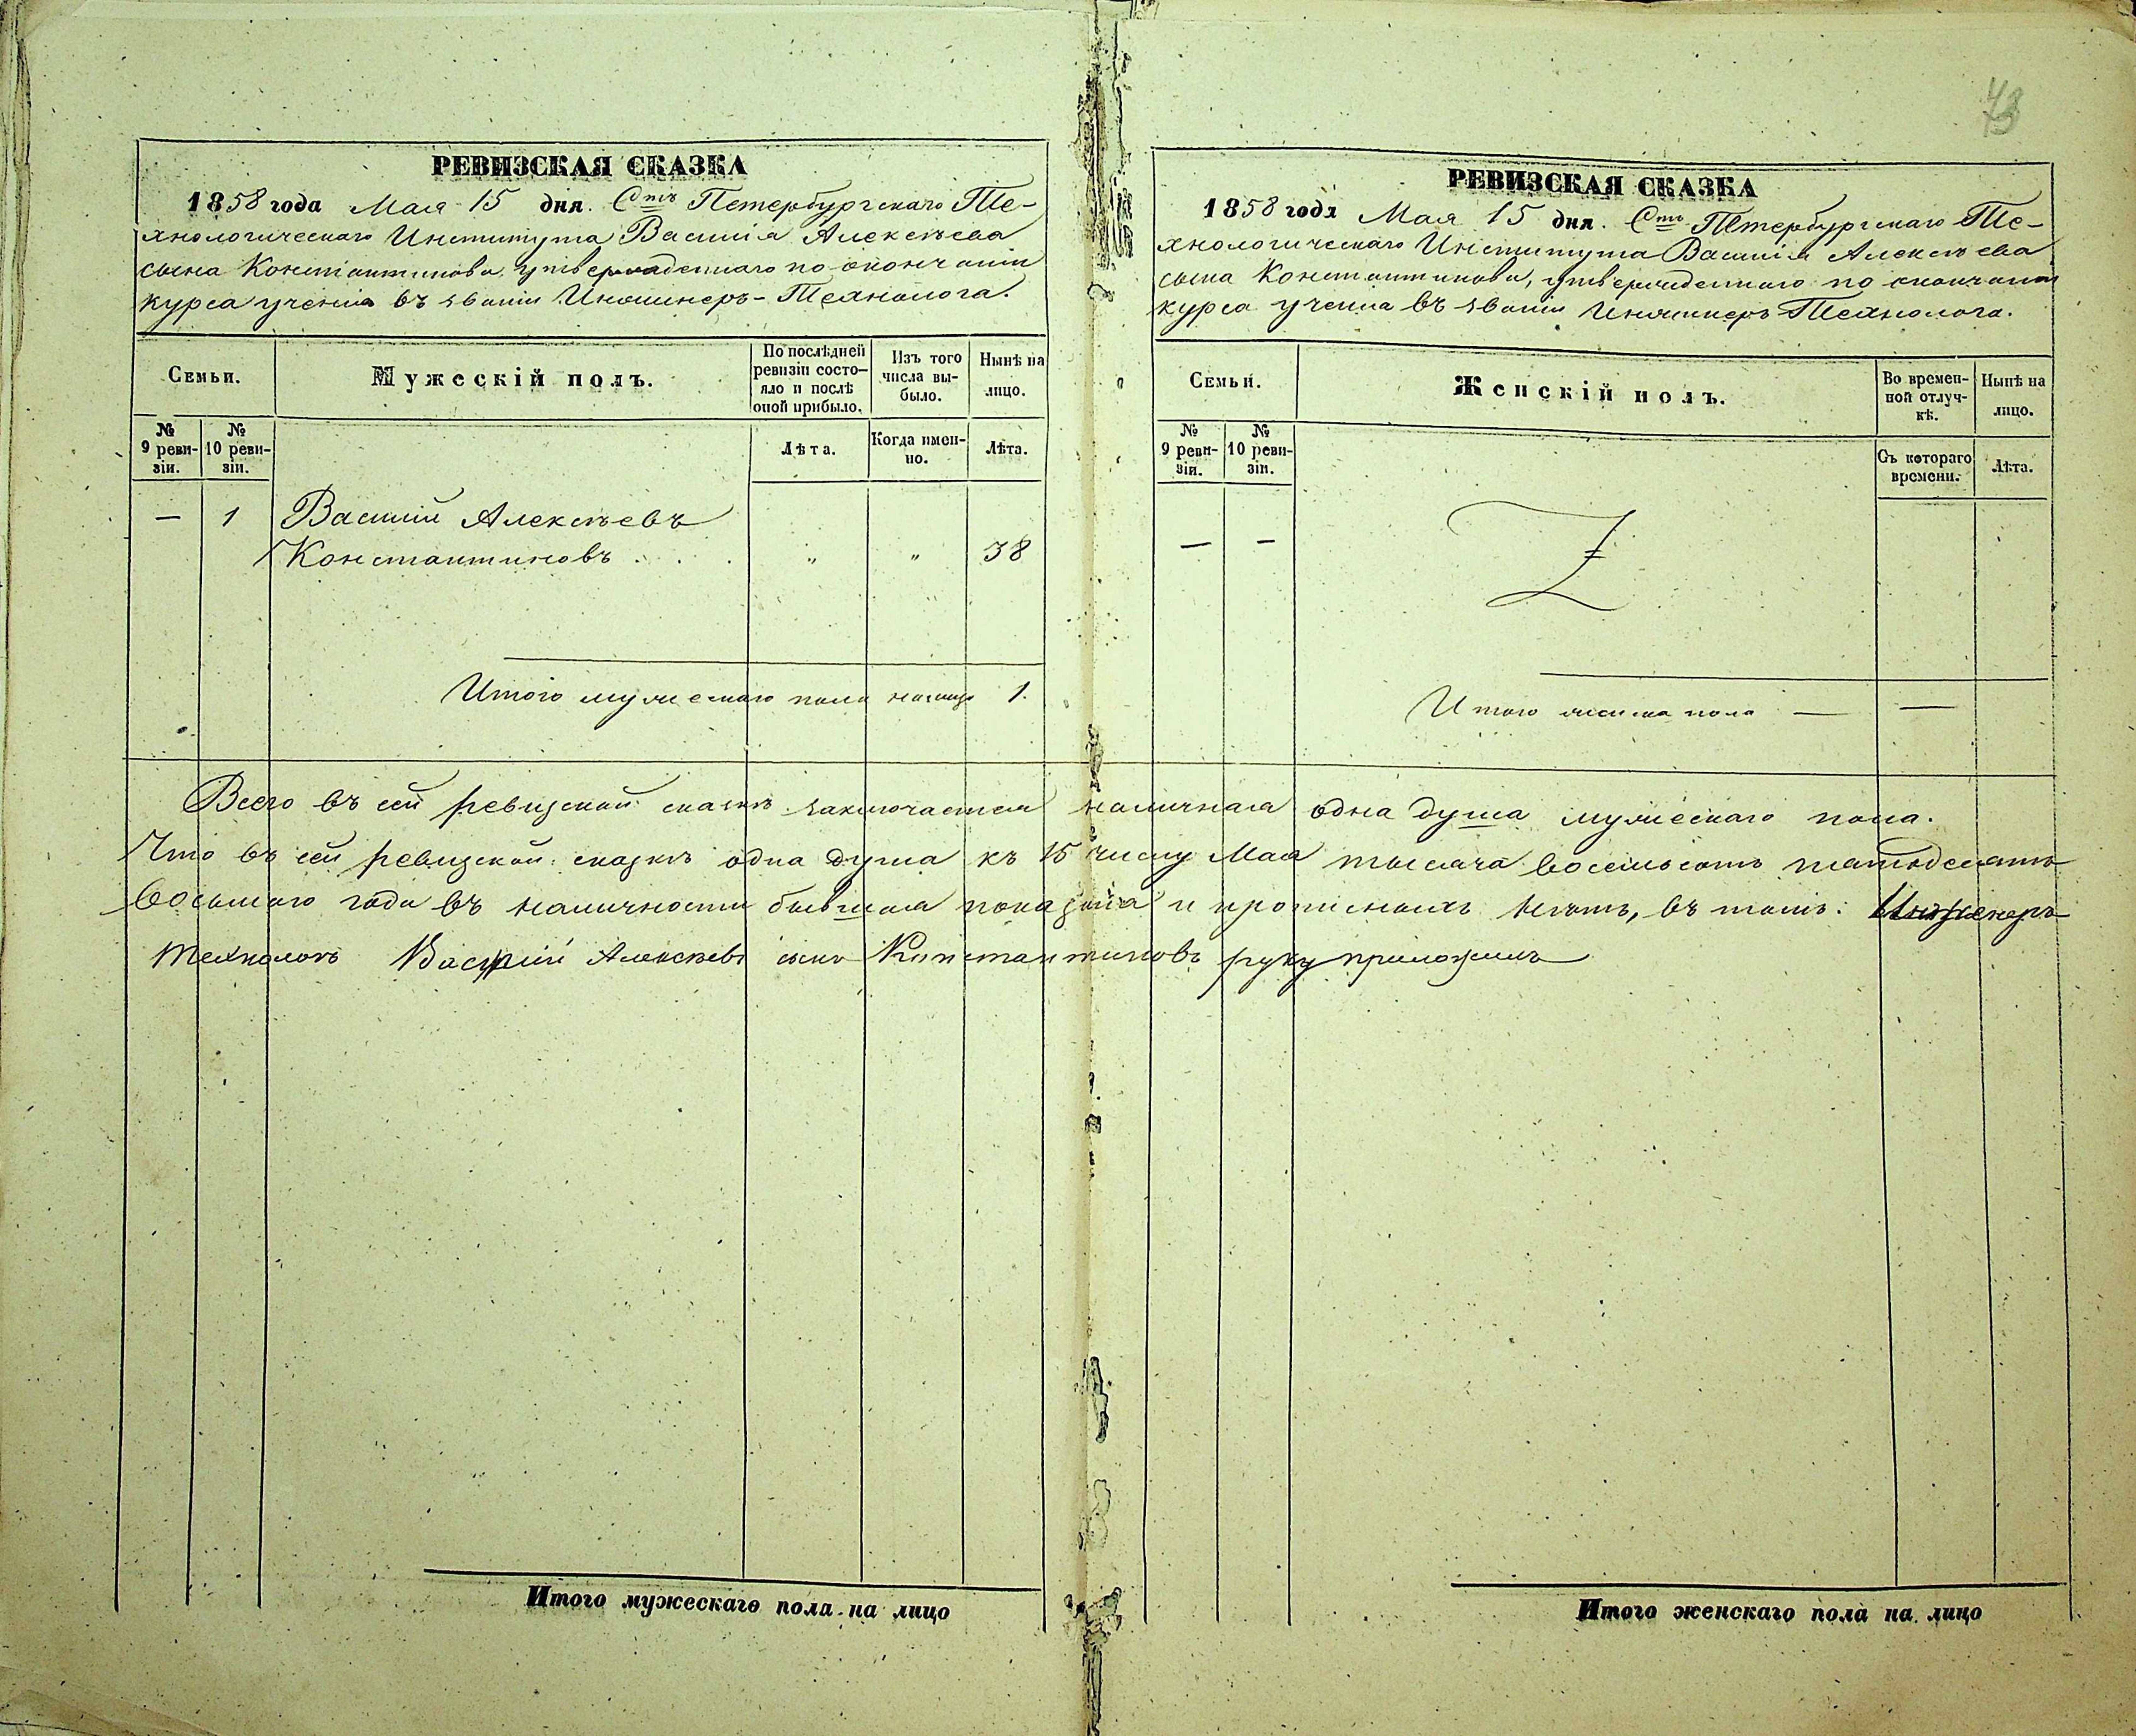 РЕВИЗСКАЯ СКАЗКА
1858 года Мая 15 дня. Стъ Петербургскаго Те-
хнологическаго Института Василія Алексѣева
сына Константинова, утвержденнаго по окончаніи
курса ученія въ званіи Инженеръ-Технолога.
Семьи. Мужескій полъ. По послѣдней ревизіи состо-яло и послѣ оной прибыло. Изъ того числа вы-было. Нынѣ на лицо.
№ 9 реви-зіи. № 10 реви-зіи. Лѣта. Когда имен-но. Лѣта.
— 1 Василій Алексѣевъ
Константиновъ . . . „ „ 38
Итого мужескаго пола налицо 1.
РЕВИЗСКАЯ СКАЗКА
1858 года Мая 15 дня. Стъ Петербургскаго Те-
хнологическаго Института Василія Алексѣева
сына Константинова, утвержденнаго по окончаніи
курса ученія въ званіи Инженеръ Технолога.
Семьи. Женскій полъ. Во времен-ной отлуч-кѣ. Нынѣ на лицо.
№ 9 реви-зіи. № 10 реви-зіи. Съ котораго времени. Лѣта.
— —
Итого женска пола — —
Всего въ сей ревизской сказкѣ заключается наличная одна душа мужескаго пола.
Что въ сей ревизской сказкѣ одна душа къ 15 числу Мая тысяча восемьсотъ пятьдесятъ
восьмаго года въ наличности бывшая показана и прописныхъ нѣтъ, въ томъ: Инженеръ
Технологъ Василій Алексѣевъ сынъ Константиновъ руку приложилъ
Итого мужескаго пола на лицо
Итого женскаго пола на лицо